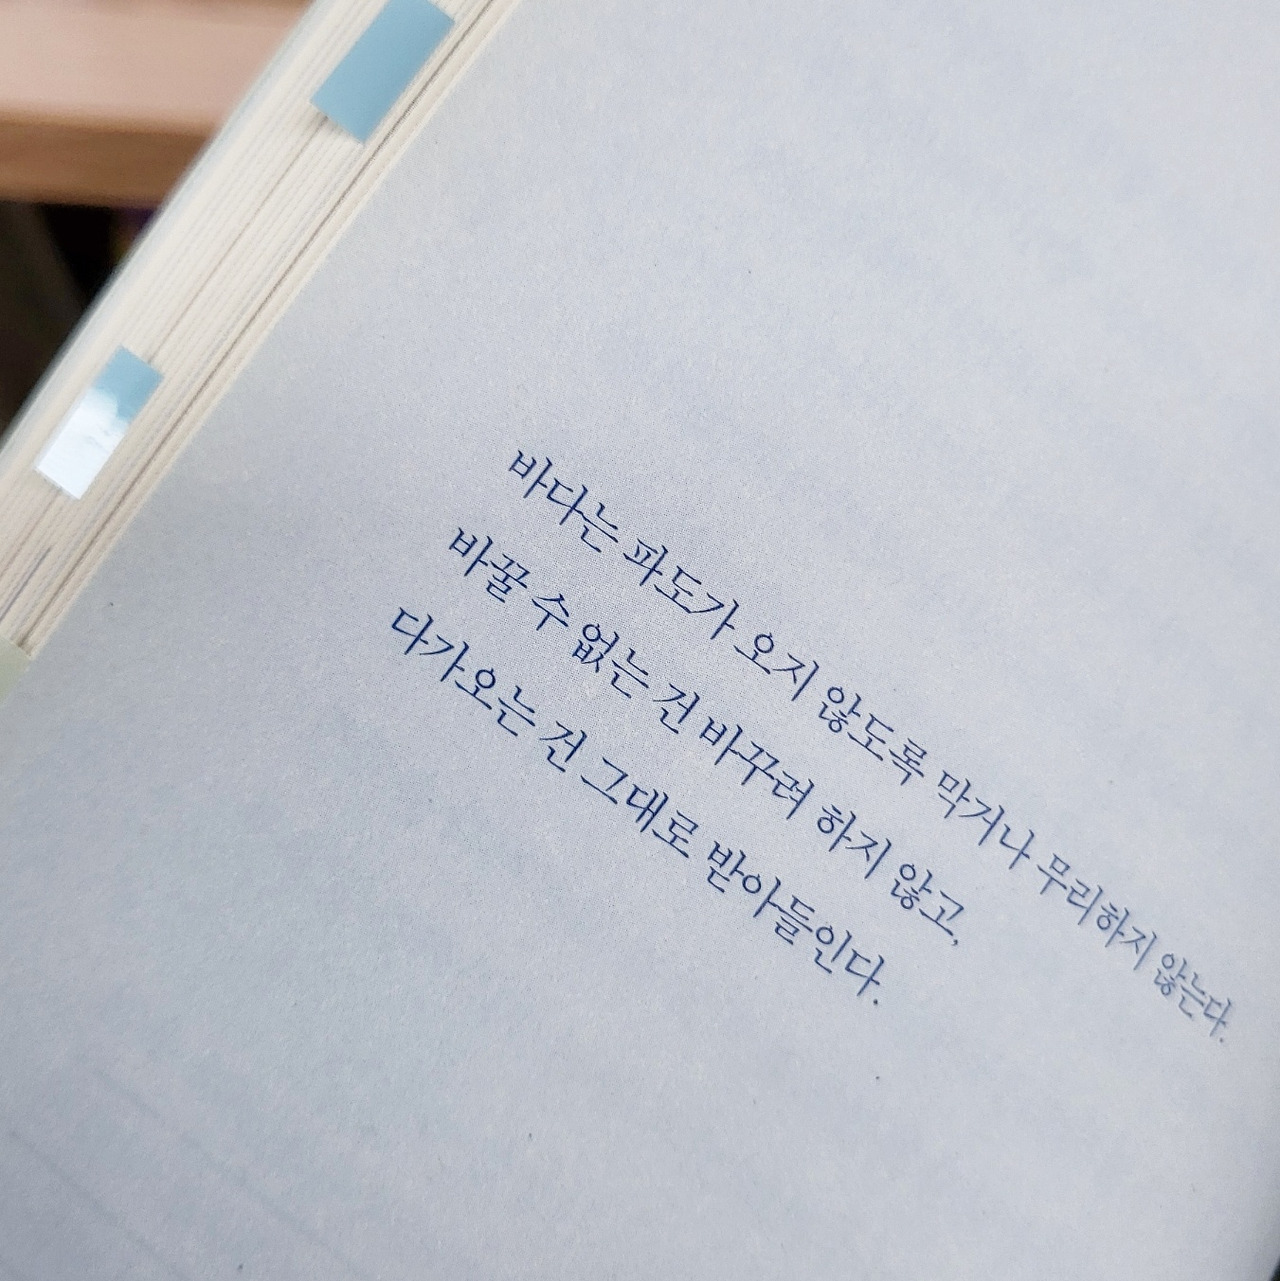 바다는 파도가 오지 않도록 막거나 무리하지 않는다.
바꿀 수 없는 건 바꾸려 하지 않고,
다가오는 건 그대로 받아들인다.